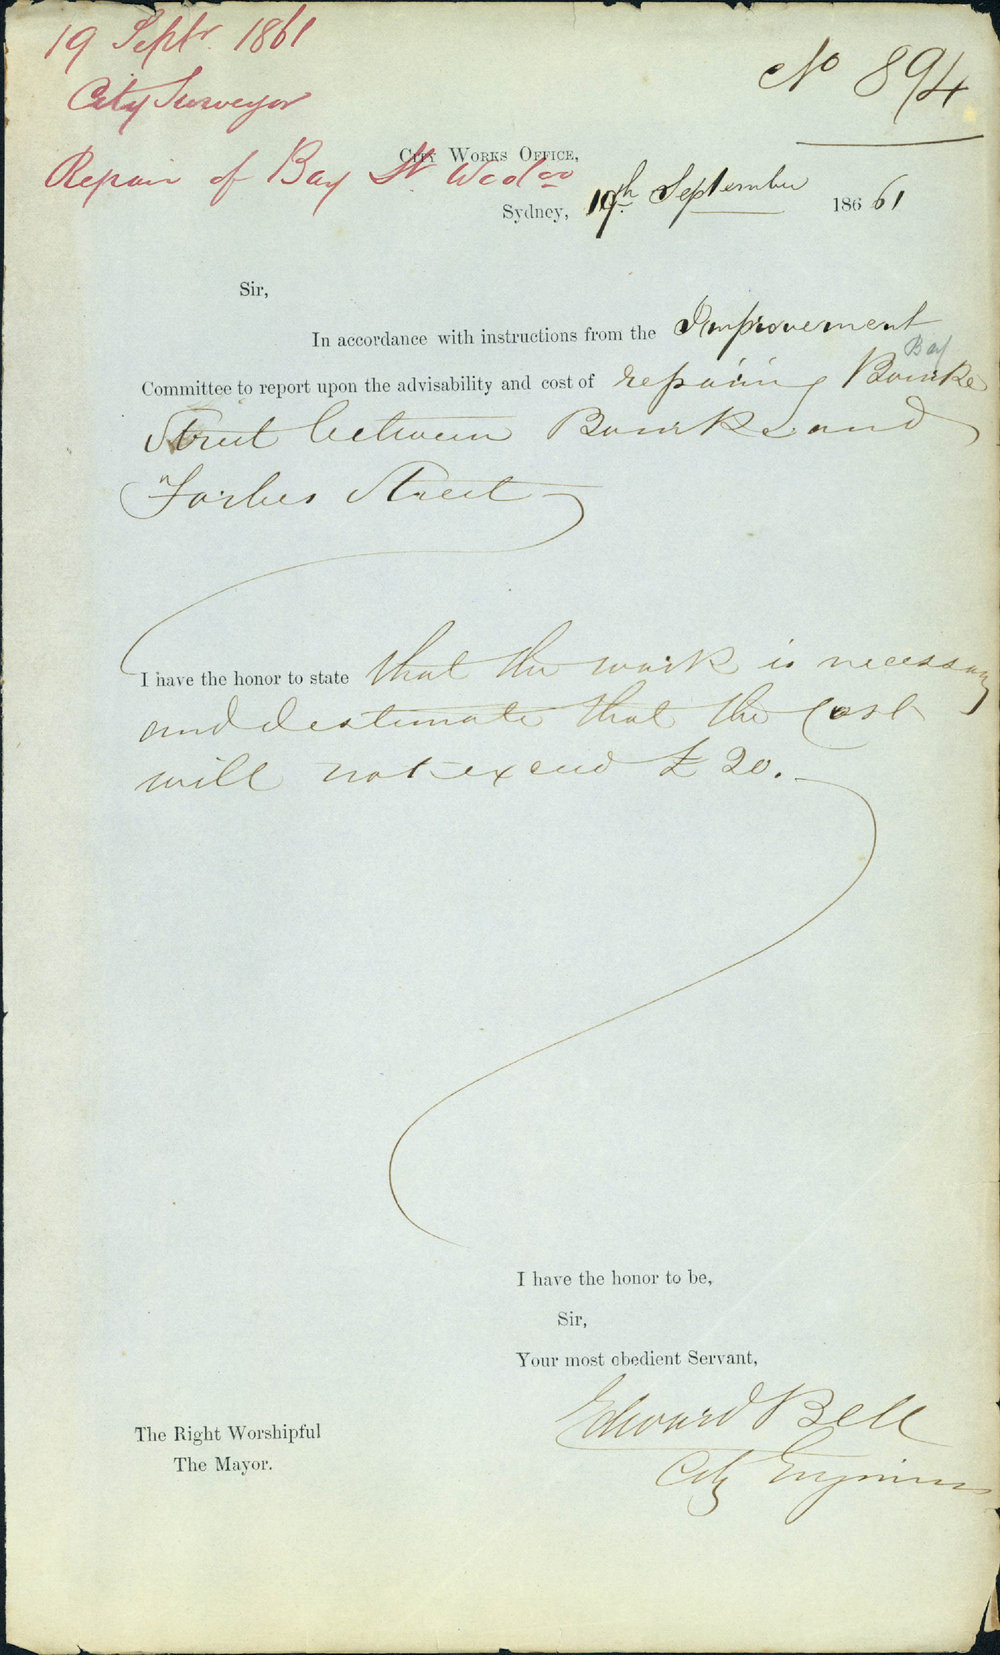 19 Septr. 1861
City Surveyor
Repair of Bay St Wooloo
No 894
City Works Office,
Sydney, 19th September 186 61
Sir,
In accordance with instructions from the Improvement
Bay
Committee to report upon the advisability and cost of repairing Bourke
Street between Bourke and
Forbes Street
I have the honor to state that the work is necessary
and I estimate that the Cost
will not exceed £20.
I have the honor to be,
Sir,
Your most obedient Servant,
Edward Bell
City Engineer
The Right Worshipful
The Mayor.